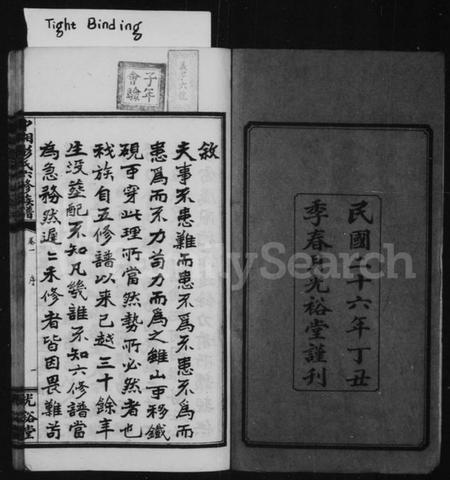 Tight Binding
民國二十六年丁丑
季春月光裕堂謹刊
子年
會驗
敘
夫事不患難而患不為不患不為而
患為而不力苟力而為之雖山可移鐵
硯可穿此理所當然勢所必然者也
我族自五修譜以來已越三十餘年
生沒葬配不知凡幾誰不知六修譜當
為急務然遲遲未修者皆因畏難苟
六修族譜
卷一
序
一
光裕堂
FamilySearch